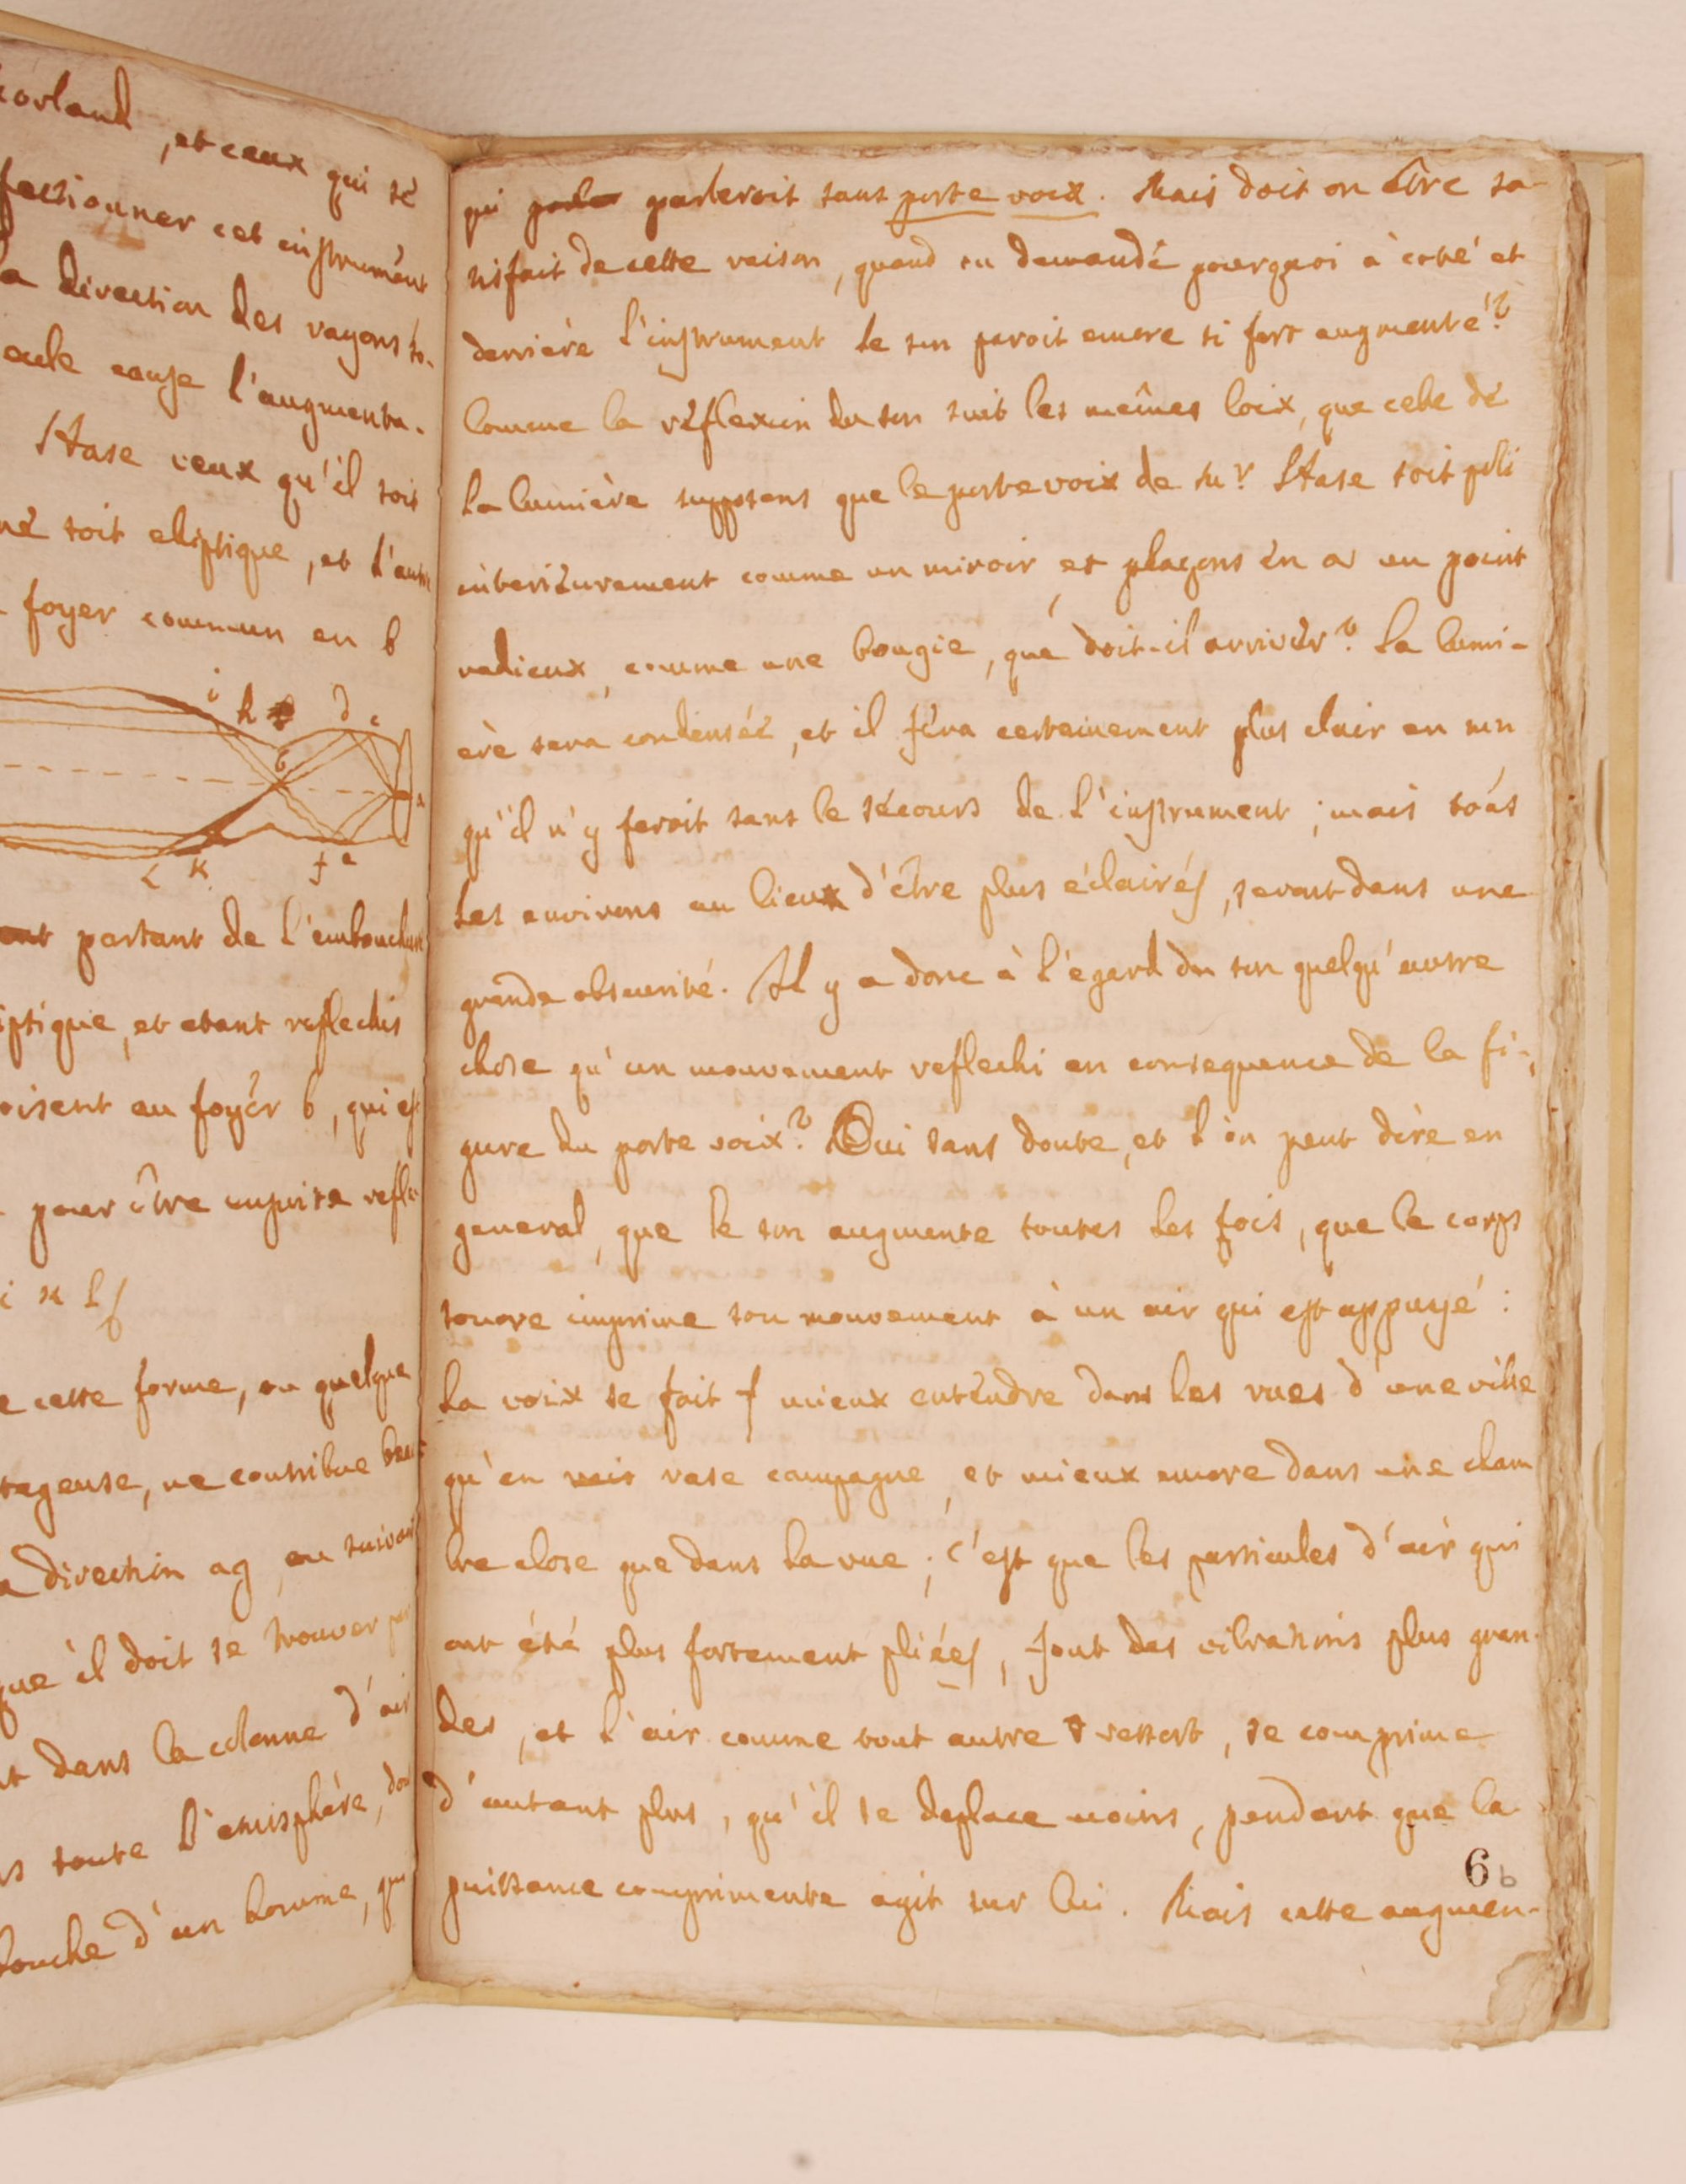 corland, et ceux qui se
fectionner cet instrument
la direction des rayons so-
eule cause l'augmenta-
Hase veux qu'il soit
né soit eliptique, et l'autre
foyer commun en b
i h d c
b a
L K f e
ent partant de l'embouchure
iptique, et etant reflechis
oisent au foyer b, qui est
pour être ensuite refle
i k L
e cette forme, ou quelque
tageuse, ne contribue beau
a direction ag, ou suivant
que il doit se trouver par
nt dans la colonne d'air
rs toute l'emisphére, dou
bouche d'un homme, qui
qui parle parleroit sans porte voix. Mais doit on être sa-
tisfait de cette raison, quand on demande pourquoi à coté et
derriére l'instrument le son paroit encore si fort augmenté?
Comme la réflexion du son suit les mêmes loix, que celle de
la lumière supposons que le porte voix de Mr Hase soit poli
interieurement comme un miroir, et plaçons en a un point
radieux, comme une bougie, que doit-il arriver? La lumi-
ere sera condensée, et il fera certainement plus clair en m n
qu'il n'y feroit sans le secours de l'instrument; mais tous
les environs au lieux d'être plus éclairés, seront dans une
grande obscurité. Il y a donc à l'egard du son quelqu'autre
chose qu'un mouvement reflechi en consequence de la fi-
gure du porte voix? Oui sans doute, et l'on peut dire en
general, que le son augmente toutes les fois, que le corps
sonore imprime son mouvement à un air qui est appuyé:
la voix se fait mieux entendre dans les rues d'une ville
qu'en rase campagne, et mieux encore dans une cham
bre close que dans la rue; c'est que les particules d'air qui
ont été plus fortement pliées, font des vibrations plus gran-
des, et l'air comme tout autre ressort, se comprime
d'autant plus, qu'il se deplace moins, pendant que la
puissance comprimente agit sur lui. Mais cette augmen-
6b